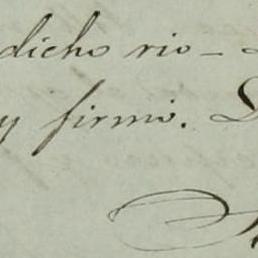 dicho rio –
y firmó.